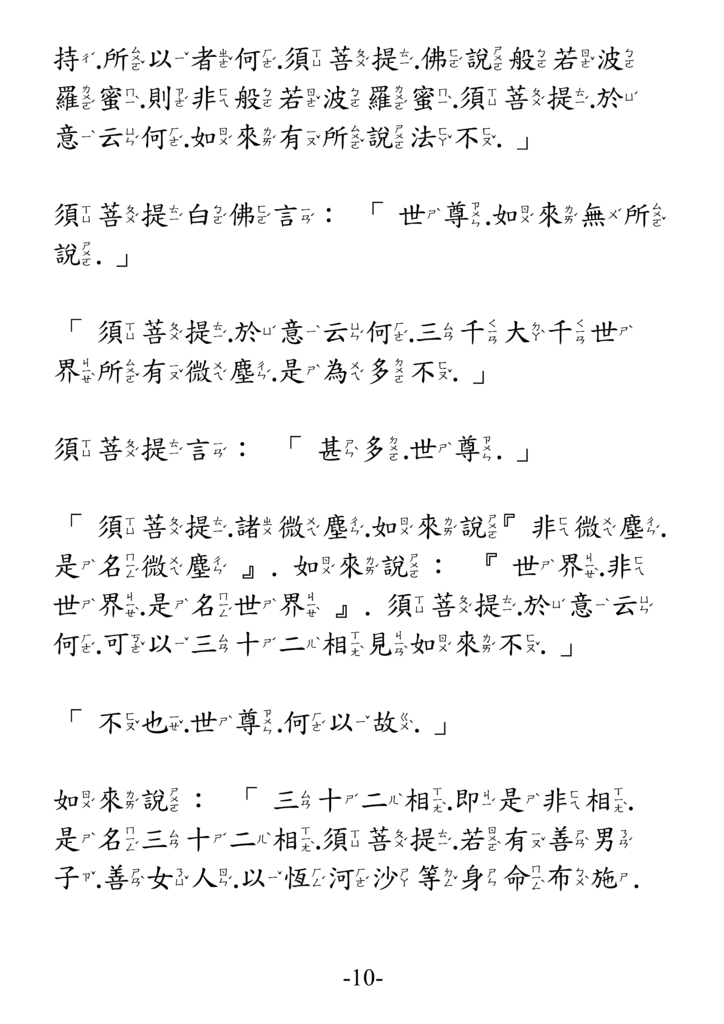 持.所以者何.須菩提.佛說般若波
羅蜜.則非般若波羅蜜.須菩提.於
意云何.如來有所說法不.」
須菩提白佛言：「世尊.如來無所
說.」
「須菩提.於意云何.三千大千世
界所有微塵.是為多不.」
須菩提言：「甚多.世尊.」
「須菩提.諸微塵.如來說『非微塵.
是名微塵』.如來說：『世界.非
世界.是名世界』.須菩提.於意云
何.可以三十二相見如來不.」
「不也.世尊.何以故.」
如來說：「三十二相.即是非相.
是名三十二相.須菩提.若有善男
子.善女人.以恆河沙等身命布施.
-10-